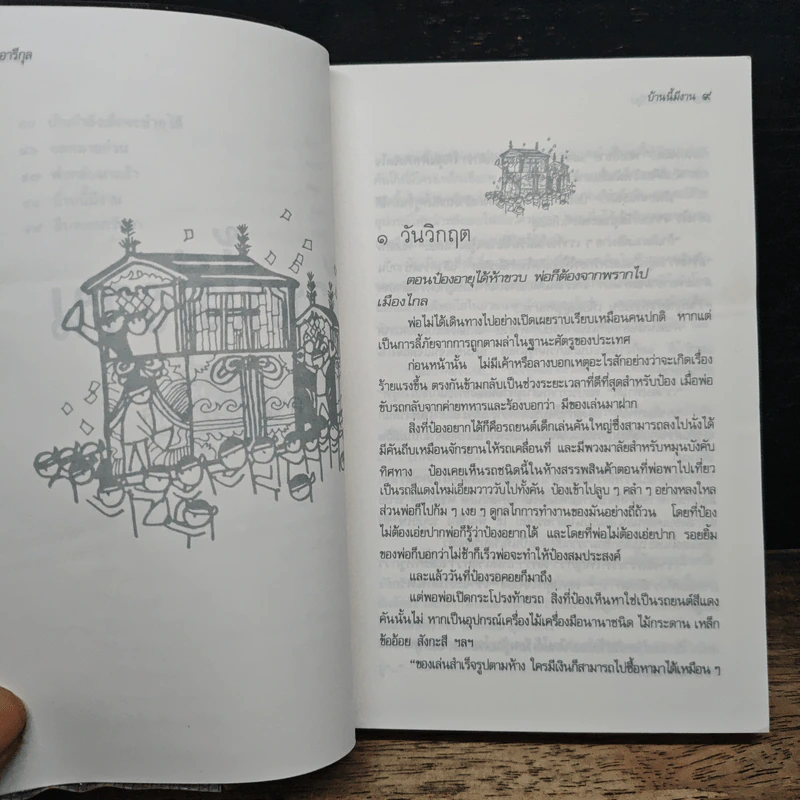 อารีกุล
บ้านนี้มีงาน ๙
๑ วันวิกฤต
ตอนป๋องอายุได้ห้าขวบ พ่อก็ต้องจากพรากไป
เมืองไกล
พ่อไม่ได้เดินทางไปอย่างเปิดเผยราบเรียบเหมือนคนปกติ หากแต่
เป็นการลี้ภัยจากการถูกตามล่าในฐานะศัตรูของประเทศ
ก่อนหน้านั้น ไม่มีเค้าหรือลางบอกเหตุอะไรสักอย่างว่าจะเกิดเรื่อง
ร้ายแรงขึ้น ตรงกันข้ามกลับเป็นช่วงระยะเวลาที่ดีที่สุดสำหรับป๋อง เมื่อพ่อ
ขับรถกลับจากค่ายทหารและร้องบอกว่า มีของเล่นมาฝาก
สิ่งที่ป๋องอยากได้ก็คือรถยนต์เด็กเล่นคันใหญ่ซึ่งสามารถลงไปนั่งได้
มีคันถีบเหมือนจักรยานให้รถเคลื่อนที่ และมีพวงมาลัยสำหรับหมุนบังคับ
ทิศทาง ป๋องเคยเห็นรถชนิดนี้ในห้างสรรพสินค้าตอนที่พ่อพาไปเที่ยว
เป็นรถสีแดงใหม่เอี่ยมวาววับไปทั้งคัน ป๋องเข้าไปลูบ ๆ คลำ ๆ อย่างหลงใหล
ส่วนพ่อก็ไปก้ม ๆ เงย ๆ ดูกลไกการทำงานของมันอย่างถี่ถ้วน โดยที่ป๋อง
ไม่ต้องเอ่ยปากพ่อก็รู้ว่าป๋องอยากได้ และโดยที่พ่อไม่ต้องเอ่ยปาก รอยยิ้ม
ของพ่อก็บอกว่าไม่ช้าก็เร็วพ่อจะทำให้ป๋องสมประสงค์
และแล้ววันที่ป๋องรอคอยก็มาถึง
แต่พอพ่อเปิดกระโปรงท้ายรถ สิ่งที่ป๋องเห็นหาใช่เป็นรถยนต์สีแดง
คันนั้นไม่ หากเป็นอุปกรณ์เครื่องไม้เครื่องมือนานาชนิด ไม้กระดาน เหล็ก
ข้ออ้อย สังกะสี ฯลฯ
“ของเล่นสำเร็จรูปตามห้าง ใครมีเงินก็สามารถไปซื้อหามาได้เหมือน ๆ